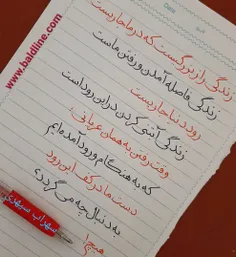 www.baldline.com
Date
Sub
زندگی راز بزرگیست که در ما جاریست
زندگی فاصله آمدن و رفتن ماست
رود دنیا جاریست
زندگی آبتنی کردن در این رود است
وقت رفتن به همان عریانی
که به هنگام ورود آمده‌ایم
دست ما در کف این رود
به دنبال چه می‌گردد؟
هیچ!
سهراب سپهری